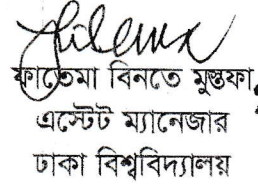 ফাতেমা বিনতে মুস্তফা
এস্টেট ম্যানেজার
ঢাকা বিশ্ববিদ্যালয়